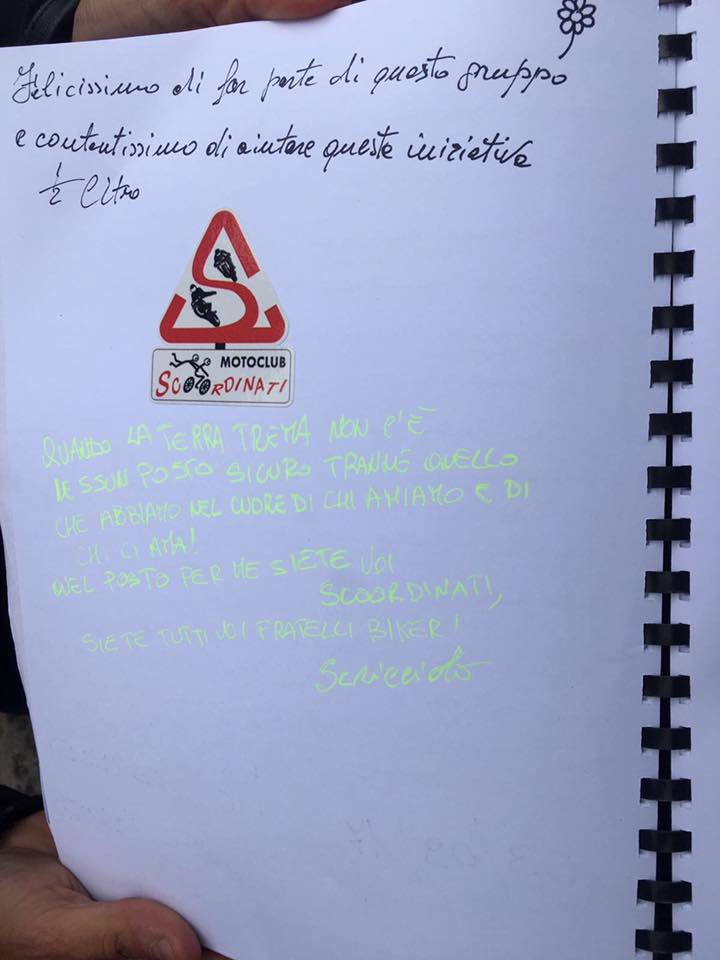 Felicissimo di far parte di questo gruppo
e contentissimo di aiutare questa iniziativa
1/2 Litro
S
MOTOCLUB
SCOORDINATI
QUANDO LA TERRA TREMA NON C'È
NESSUN POSTO SICURO TRANNE QUELLO
CHE ABBIAMO NEL CUORE DI CHI AMIAMO E DI
CHI CI AMA!
QUEL POSTO PER ME SIETE VOI
SCOORDINATI,
SIETE TUTTI VOI FRATELLI BIKER!
Scricciolo